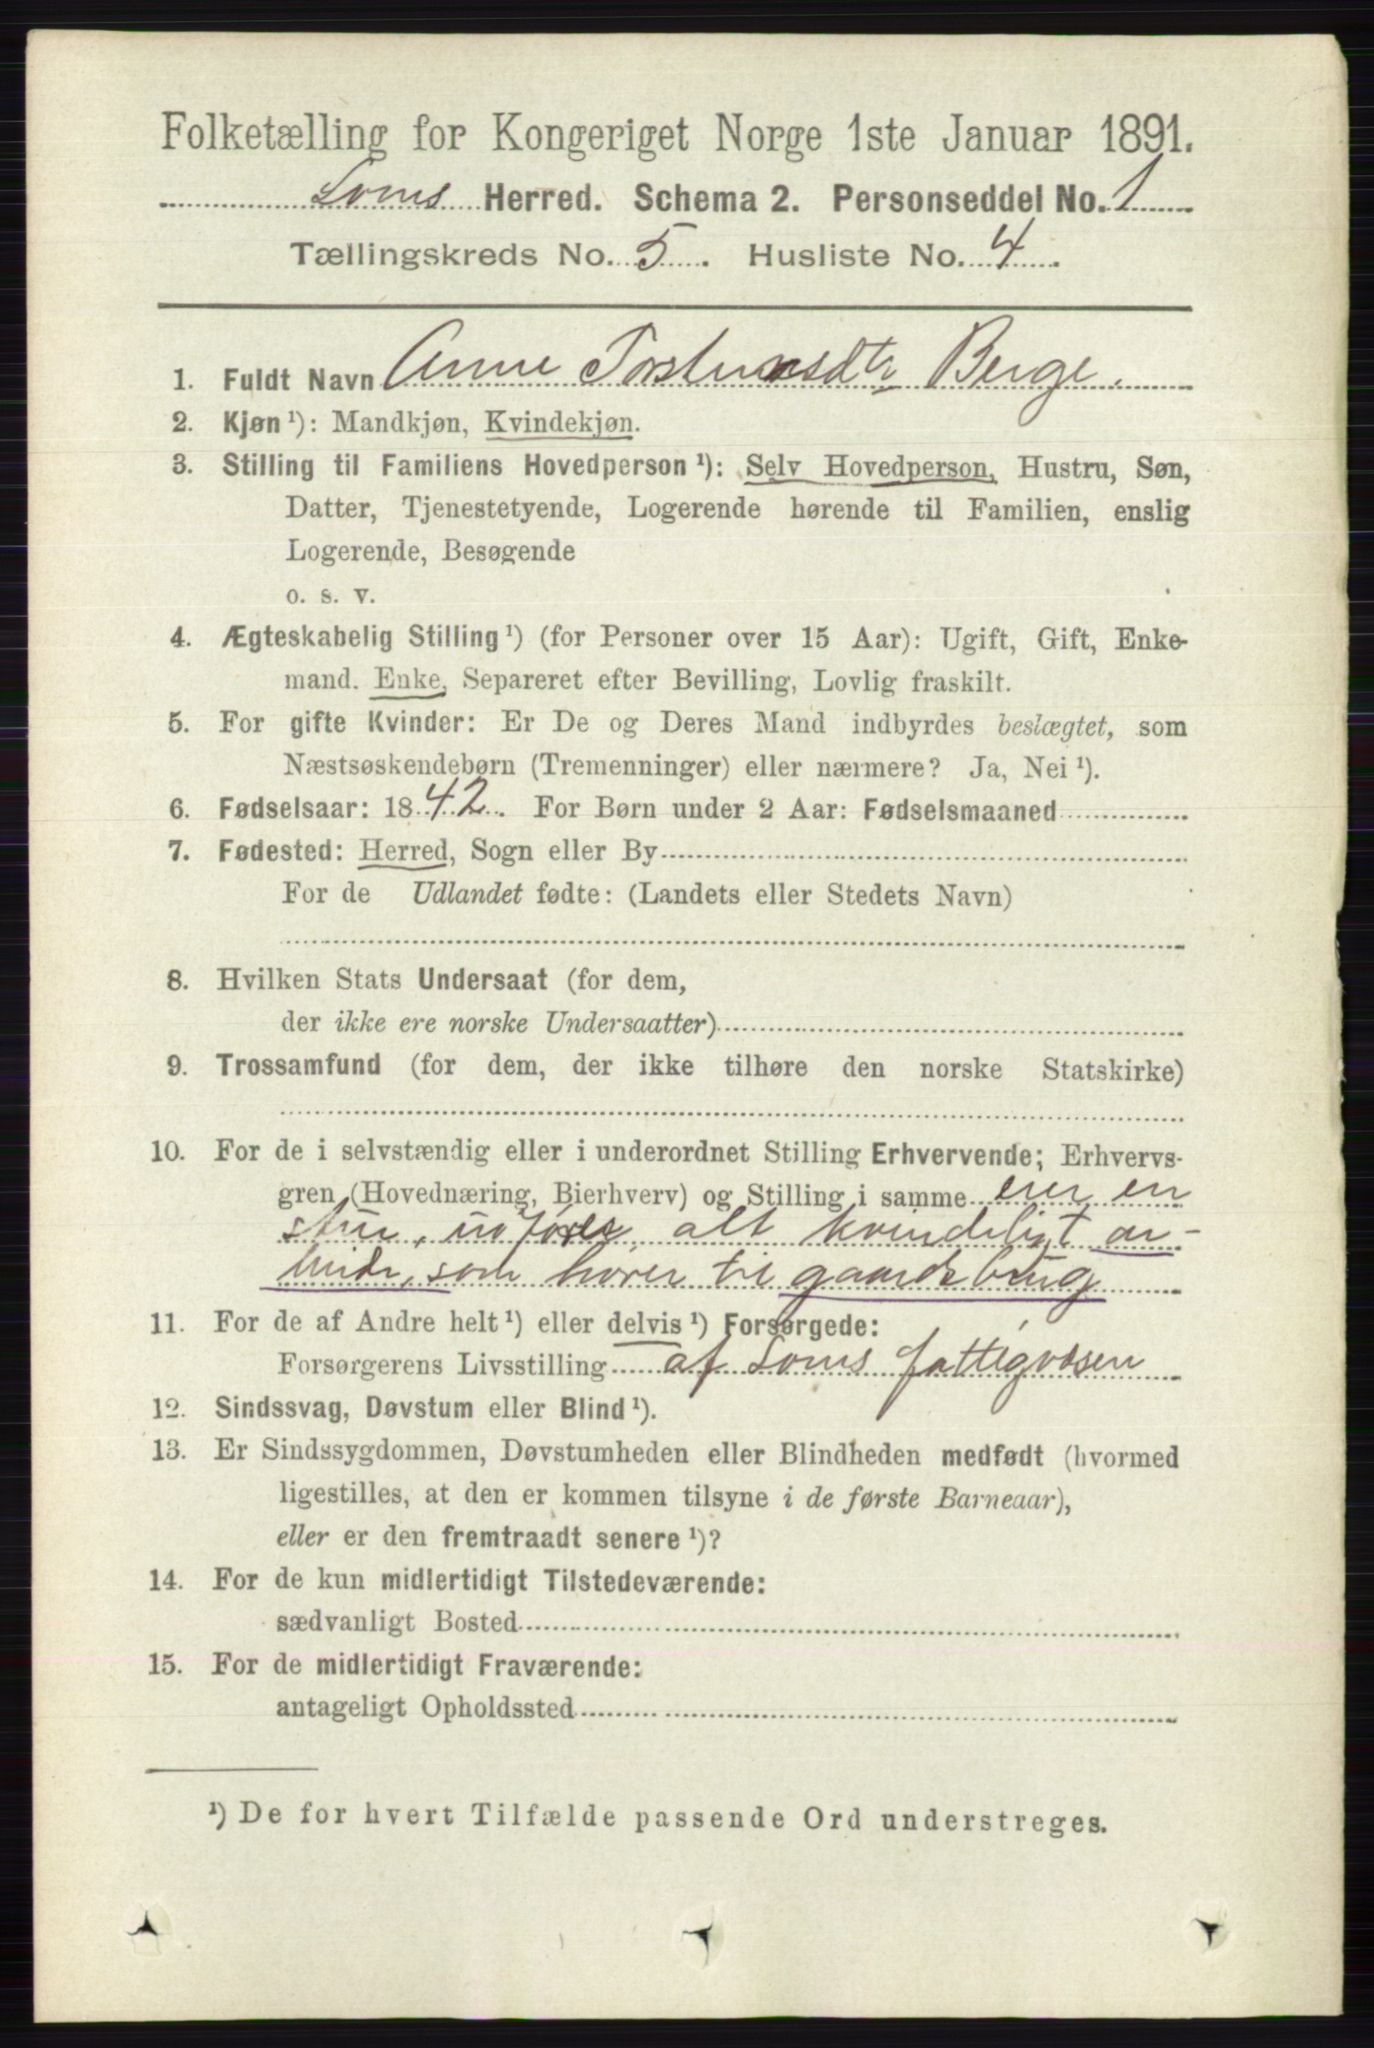 Folketælling for Kongeriget Norge 1ste Januar 1891.
Loms Herred. Schema 2. Personseddel No. 1
Tællingskreds No. 5. Husliste No. 4.
1. Fuldt Navn Anne Berge.
2. Kjøn ¹): Mandkjøn, Kvindekjøn.
3. Stilling til Familiens Hovedperson ¹): Selv Hovedperson, Hustru, Søn,
Datter, Tjenestetyende, Logerende hørende til Familien, enslig
Logerende, Besøgende
o. s. v.
4. Ægteskabelig Stilling ¹) (for Personer over 15 Aar): Ugift, Gift, Enke-
mand. Enke, Separeret efter Bevilling, Lovlig fraskilt.
5. For gifte Kvinder: Er De og Deres Mand indbyrdes beslægtet, som
Næstsøskendebørn (Tremenninger) eller nærmere? Ja, Nei ¹).
6. Fødselsaar: 1842. For Børn under 2 Aar: Fødselsmaaned
7. Fødested: Herred, Sogn eller By
For de Udlandet fødte: (Landets eller Stedets Navn)
8. Hvilken Stats Undersaat (for dem,
der ikke ere norske Undersaatter)
9. Trossamfund (for dem, der ikke tilhøre den norske Statskirke)
10. For de i selvstændig eller i underordnet Stilling Erhvervende; Erhvervs-
gren (Hovednæring, Bierhverv) og Stilling i samme eier en
stue, udfører alt kvindeligt ar-
beide, som hører til gaardsbrug
11. For de af Andre helt ¹) eller delvis ¹) Forsørgede:
Forsørgerens Livsstilling af Loms fattigvæsen
12. Sindssvag, Døvstum eller Blind ¹).
13. Er Sindssygdommen, Døvstumheden eller Blindheden medfødt (hvormed
ligestilles, at den er kommen tilsyne i de første Barneaar),
eller er den fremtraadt senere ¹)?
14. For de kun midlertidigt Tilstedeværende:
sædvanligt Bosted
15. For de midlertidigt Fraværende:
antageligt Opholdssted
¹) De for hvert Tilfælde passende Ord understreges.